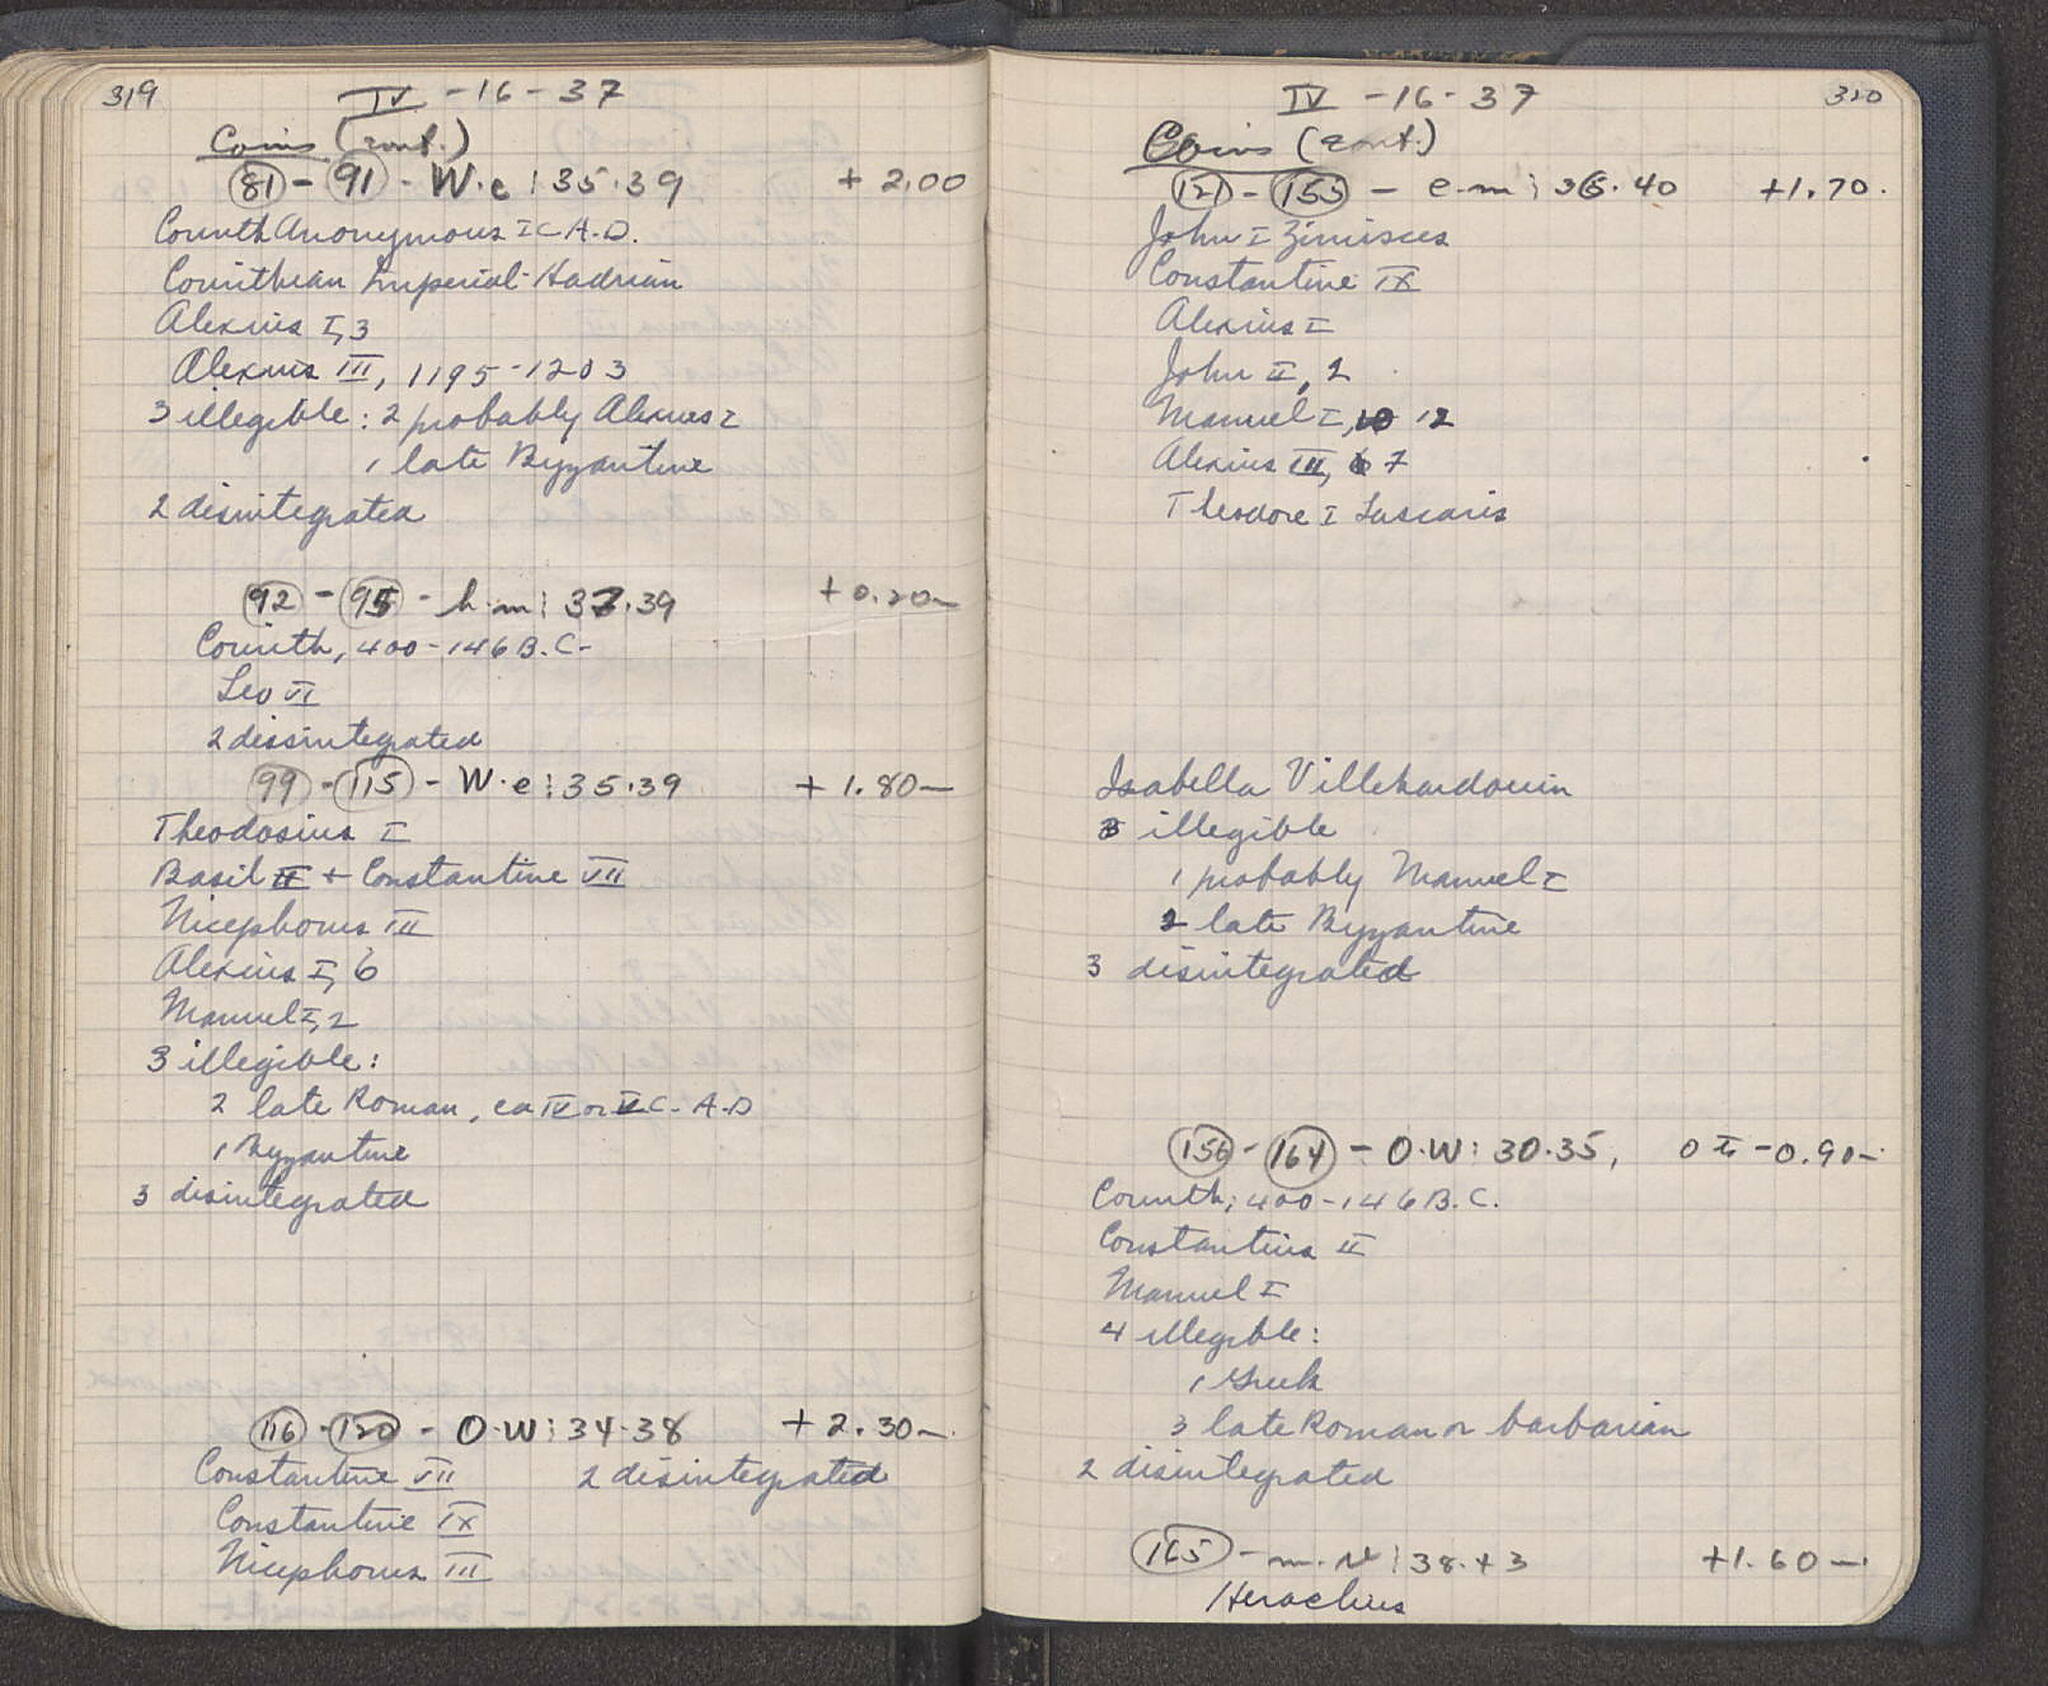 319
IV - 16 - 37
Coins (cont.)
81 - 91 - W.e : 35.39 + 2.00
Corinth Anonymous I C A.D.
Corinthian Imperial - Hadrian
Alexius I, 3
Alexius III, 1195-1203
3 illegible : 2 probably Alexius I
1 late Byzantine
2 disintegrated
92 - 95 - h.m : 37.39 + 0.20 -
Corinth, 400-146 B.C.
Leo VI
2 dissintegrated
99 - 115 - W.e : 35.39 + 1.80 -
Theodosius I
Basil II + Constantine VII
Nicephorus III
Alexius I, 6
Manuel I, 2
3 illegible :
2 late Roman, ca IV or V C. A.D
1 Byzantine
3 disintegrated
116 - 120 - O.W : 34.38 + 2.30 -
Constantine VII 2 disintegrated
Constantine IX
Nicephorus III
320
IV - 16 - 37
Coins (cont.)
121 - 155 - e.m : 36.40 +1.70.
John I Zimisces
Constantine IX
Alexius I
John II, 2
Manuel I, 12
Alexius III, 7
Theodore I Lascaris
Isabella Villehardouin
3 illegible
1 probably Manuel I
2 late Byzantine
3 disintegrated
156 - 164 - O.W : 30.35, 0 to -0.90 -
Corinth, 400-146 B.C.
Constantius II
Manuel I
4 illegible :
1 Greek
3 late Roman or barbarian
2 disintegrated
165 - m. : 38.43 +1.60 -
Heraclius